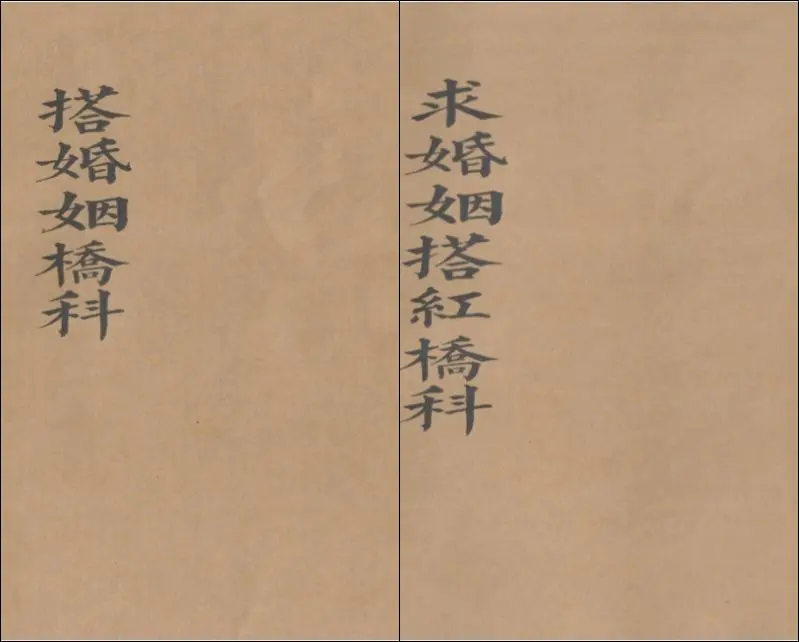 搭婚姻橋科
求婚姻搭紅橋科